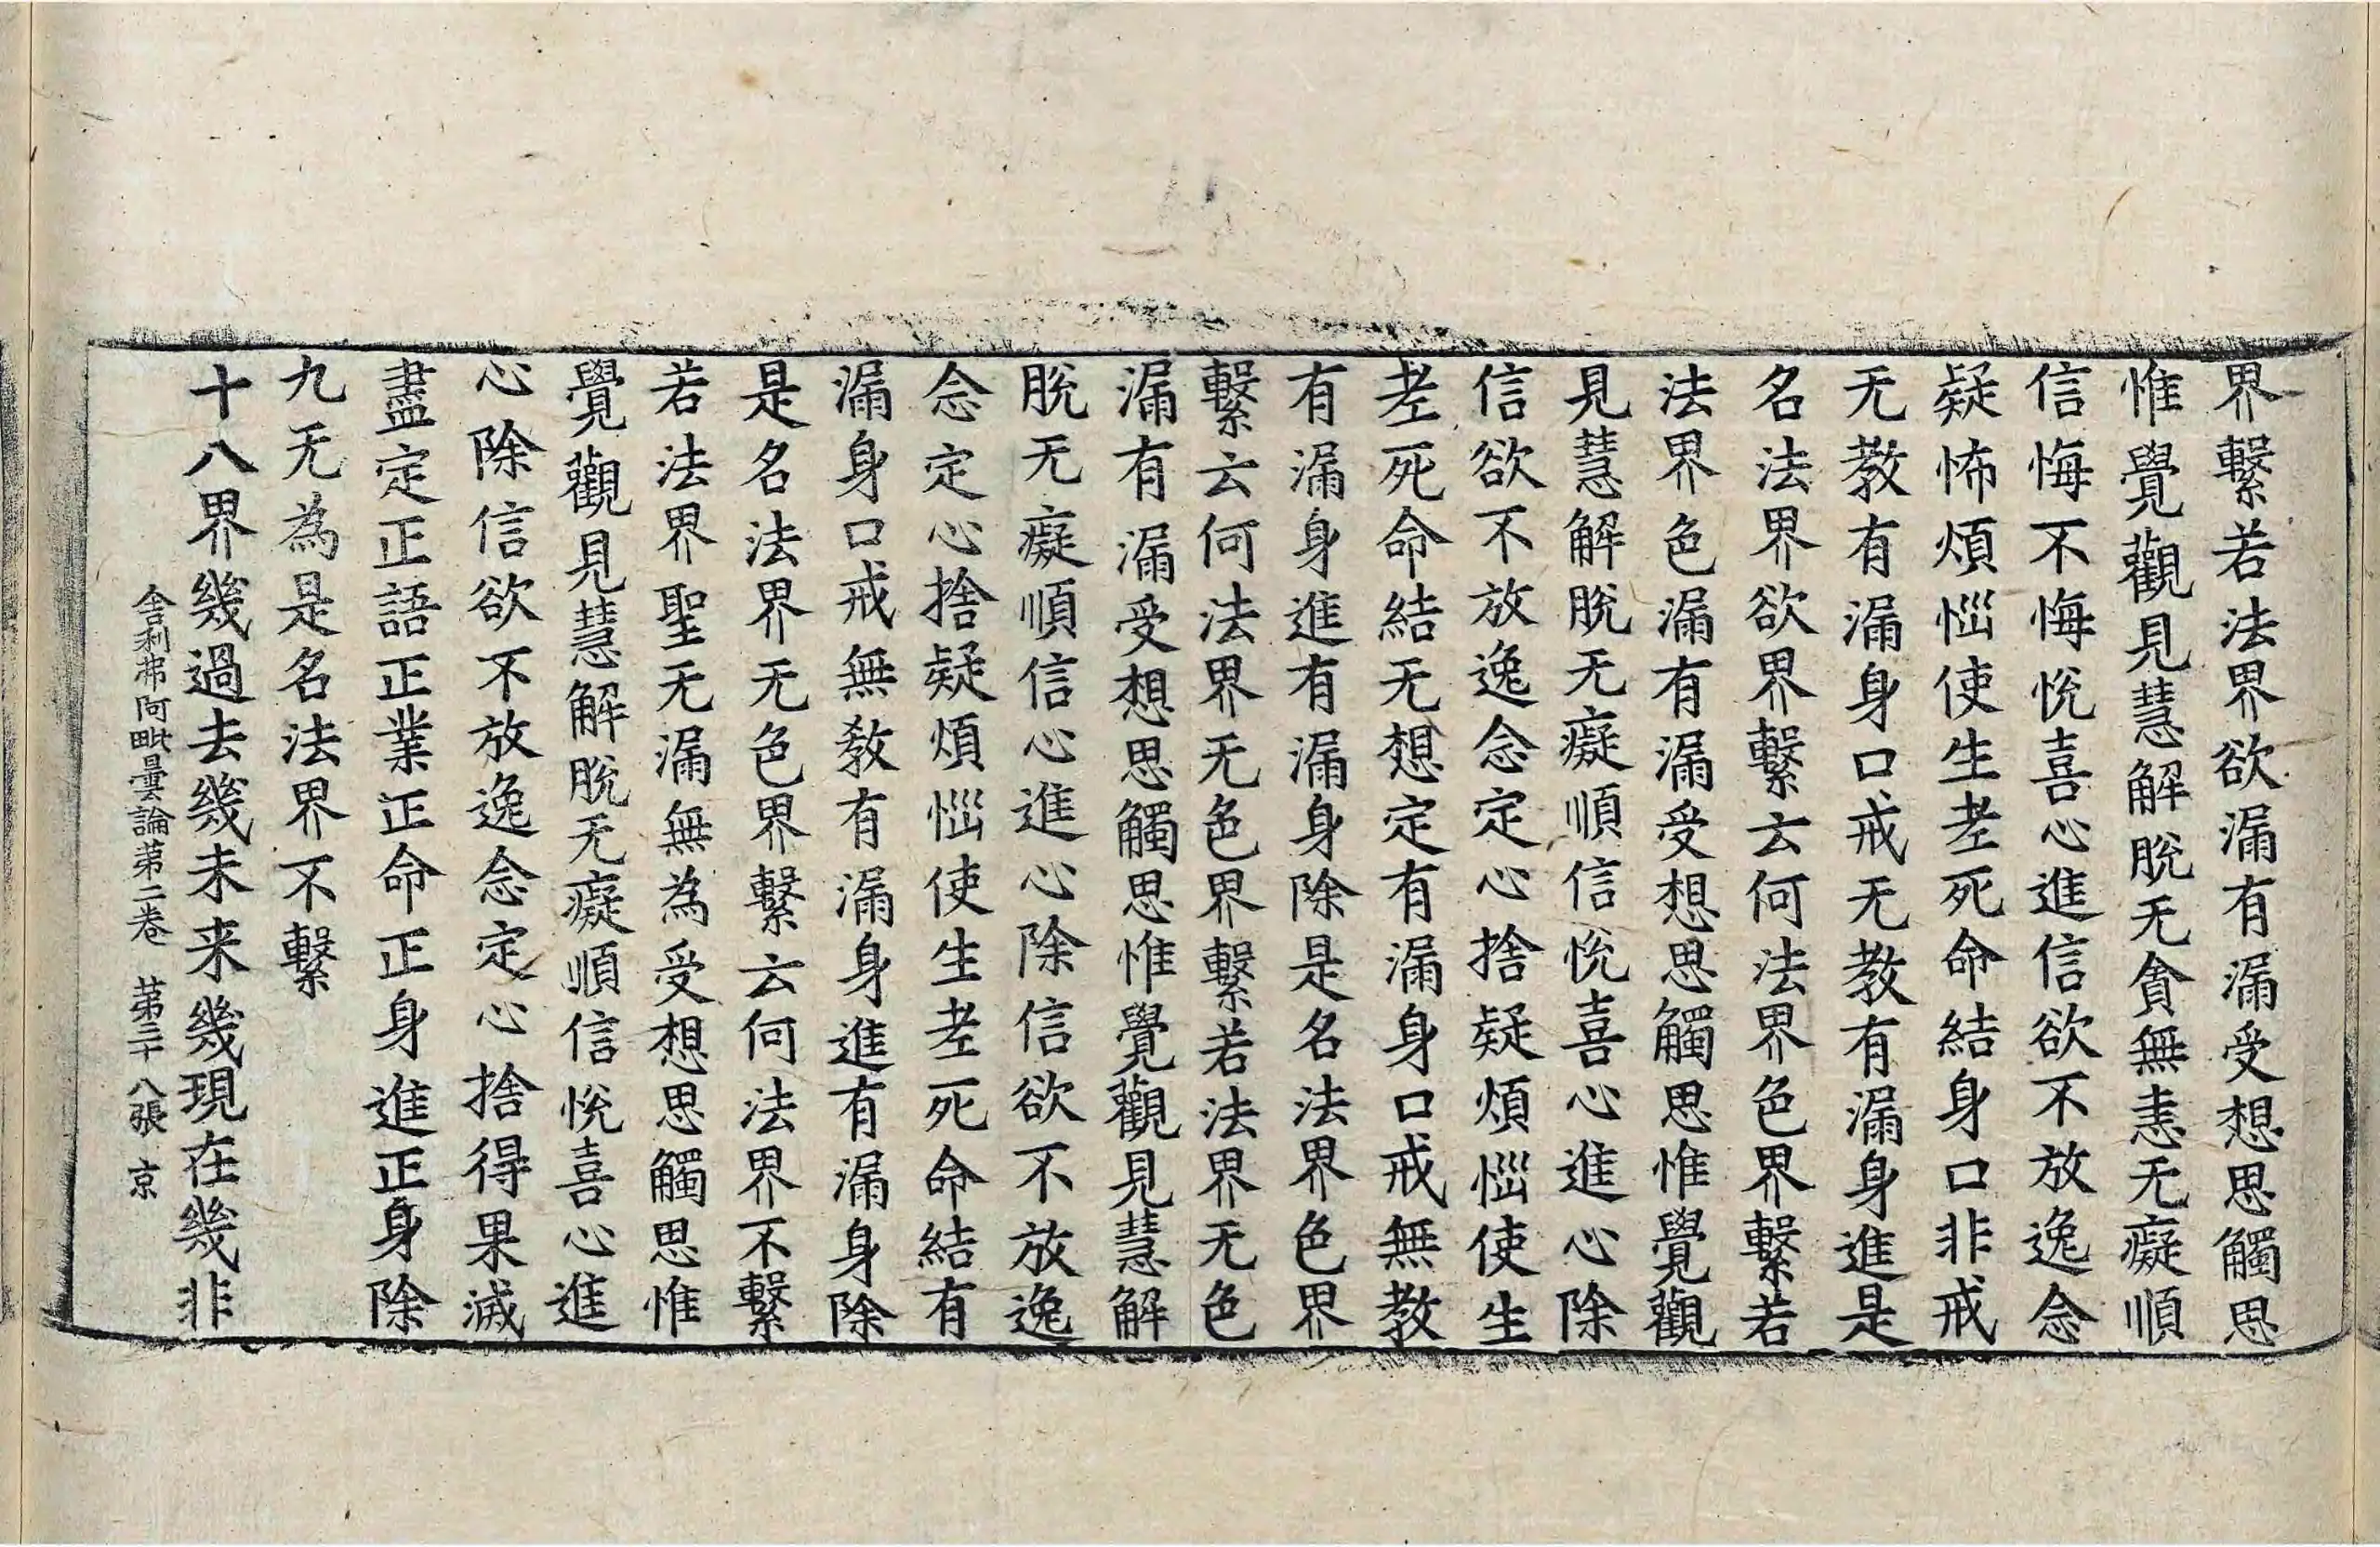 界繫若法界欲漏有漏受想思觸思
惟覺觀見慧解脫无貪無恚无癡順
信悔不悔悅喜心進信欲不放逸念
疑怖煩惱使生老死命結身口非戒
无教有漏身口戒无教有漏身進是
名法界欲界繫云何法界色界繫若
法界色漏有漏受想思觸思惟覺觀
見慧解脫无癡順信悅喜心進心除
信欲不放逸念定心捨疑煩惱使生
老死命結无想定有漏身口戒無教
有漏身進有漏身除是名法界色界
繫云何法界无色界繫若法界无色
漏有漏受想思觸思惟覺觀見慧解
脫无癡順信心進心除信欲不放逸
念定心捨疑煩惱使生老死命結有
漏身口戒無教有漏身進有漏身除
是名法界无色界繫云何法界不繫
若法界聖无漏無為受想思觸思惟
覺觀見慧解脫无癡順信悅喜心進
心除信欲不放逸念定心捨得果滅
盡定正語正業正命正身進正身除
九无為是名法界不繫
十八界幾過去幾未来幾現在幾非
舍利弗阿毗曇論第二卷 第三十八張 京